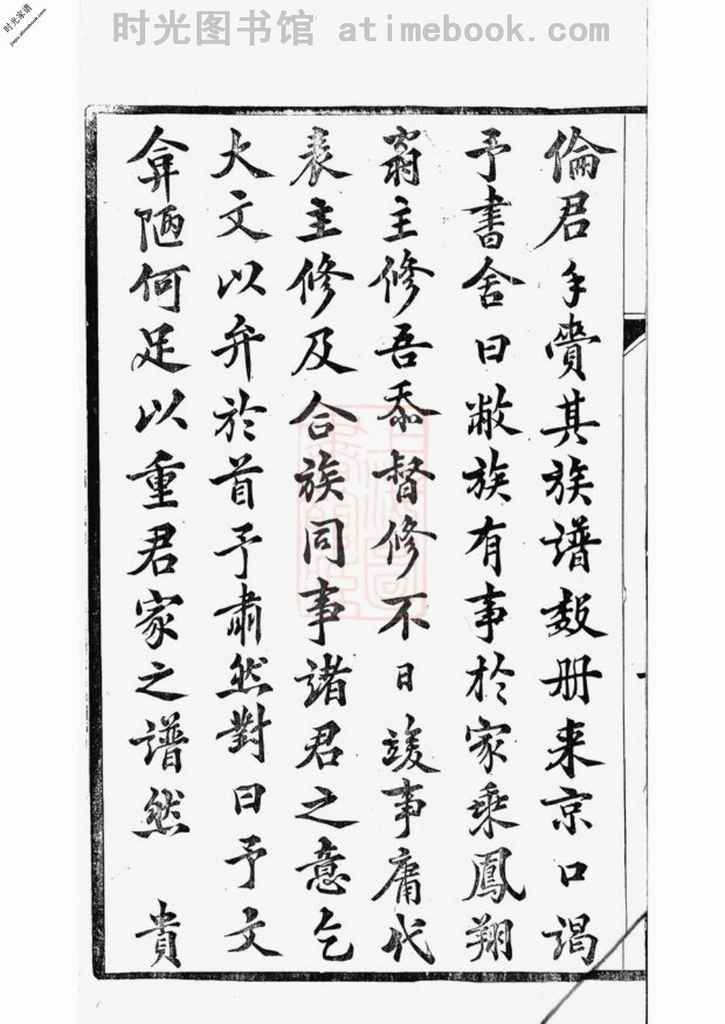 时光图书馆 atimebook.com
时光家谱
倫君手賫其族譜數册来京口謁
予書舍曰敝族有事於家乘鳳翔
翁主修吾忝督修不日竣事庸代
表主修及合族同事諸君之意乞
大文以弁於首予肅然對曰予文
弇陋何足以重君家之譜然 貴